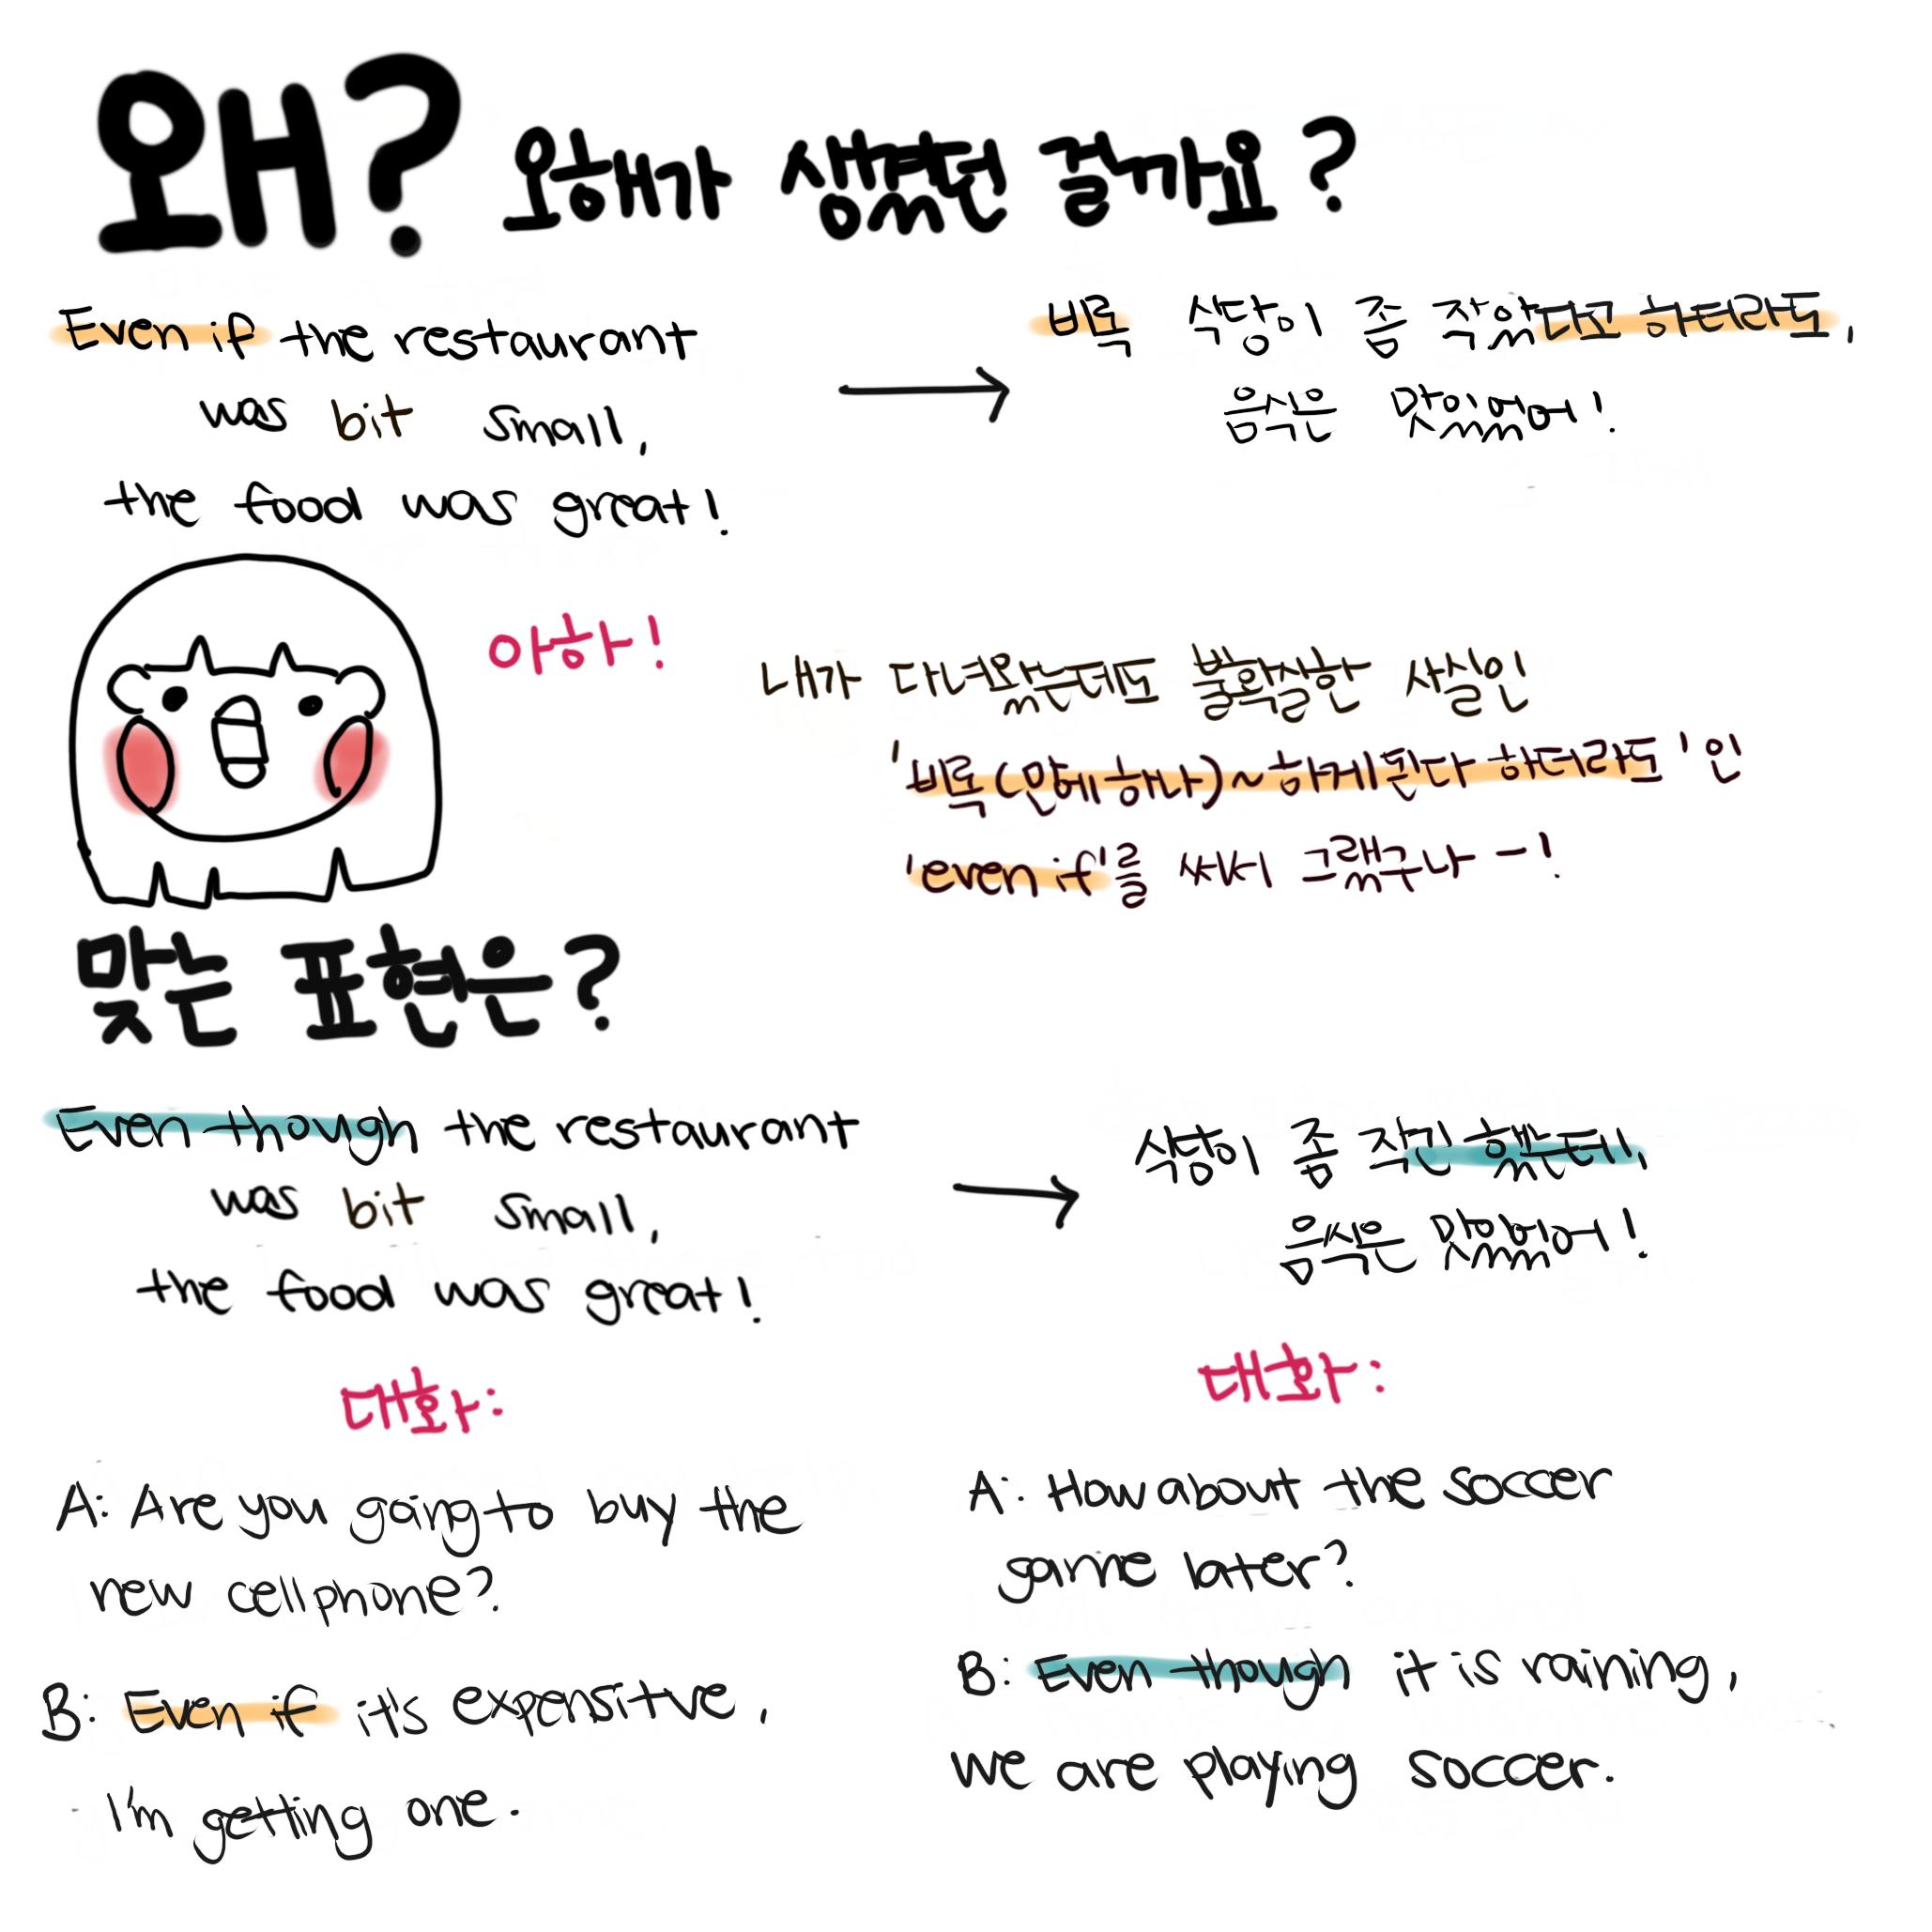 왜? 오해가 생겼던 걸까요?
Even if the restaurant
was bit small,
the food was great!
비록 식당이 좀 작았다고 하더라도,
음식은 맛있었어!
아하!
내가 다녀왔는데도 불확실한 사실인
'비록(만에 하나)~하게된다 하더라도'인
'even if'를 써서 그랬구나-!
맞는 표현은?
Even though the restaurant
was bit small,
the food was great!
식당이 좀 작긴 했는데,
음식은 맛있었어!
대화:
A: Are you going to buy the
new cellphone?
B: Even if it's expensitve,
I'm getting one.
대화:
A: How about the soccer
game later?
B: Even though it is raining,
we are playing soccer.